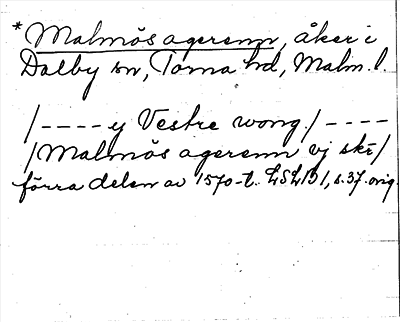 * Malmös agerenn, åker i
Dalby sn, Torna hd, Malm. l.
/---- y Vestre wong. / ----
/ Malmös agerenn vj skr /
förra delen av 1570-t. LSLB1, s. 37. orig.